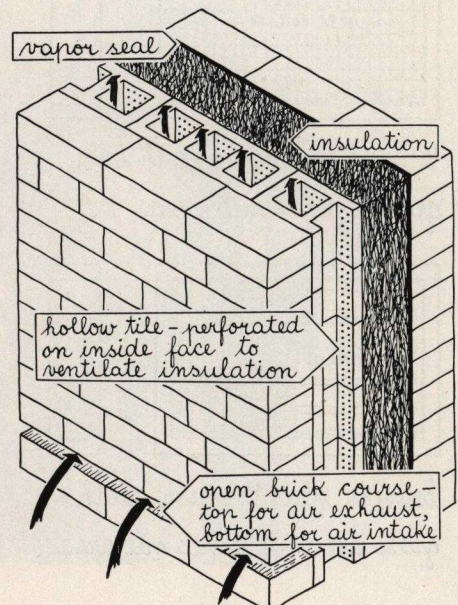 vapor seal
insulation
hollow tile - perforated
on inside face to
ventilate insulation
open brick course -
top for air exhaust,
bottom for air intake